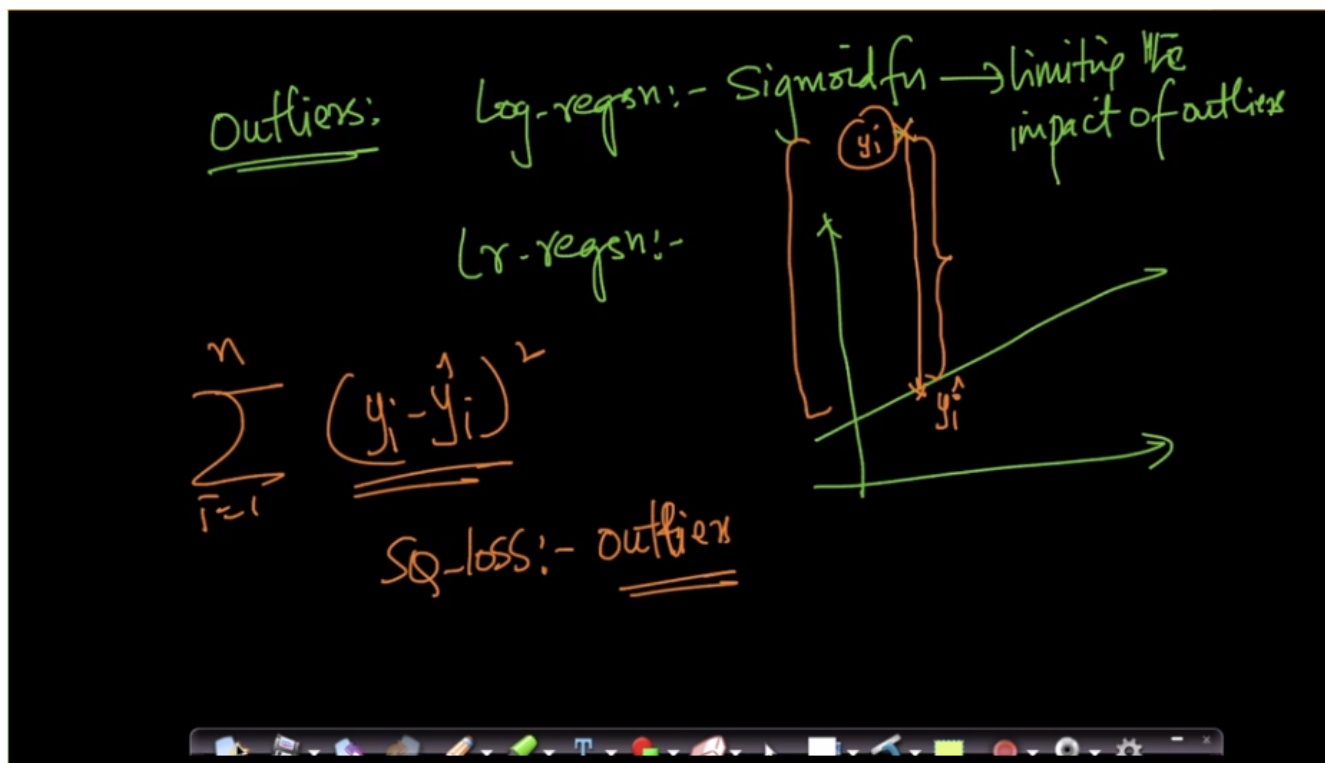 Outliers: Log-regsn:- Sigmoid fn → limiting the
impact of outliers
yi
Lr-regsn:-
n
∑ (yi - ŷi)²
i=1
ŷi
SQ-loss:- outliers
T